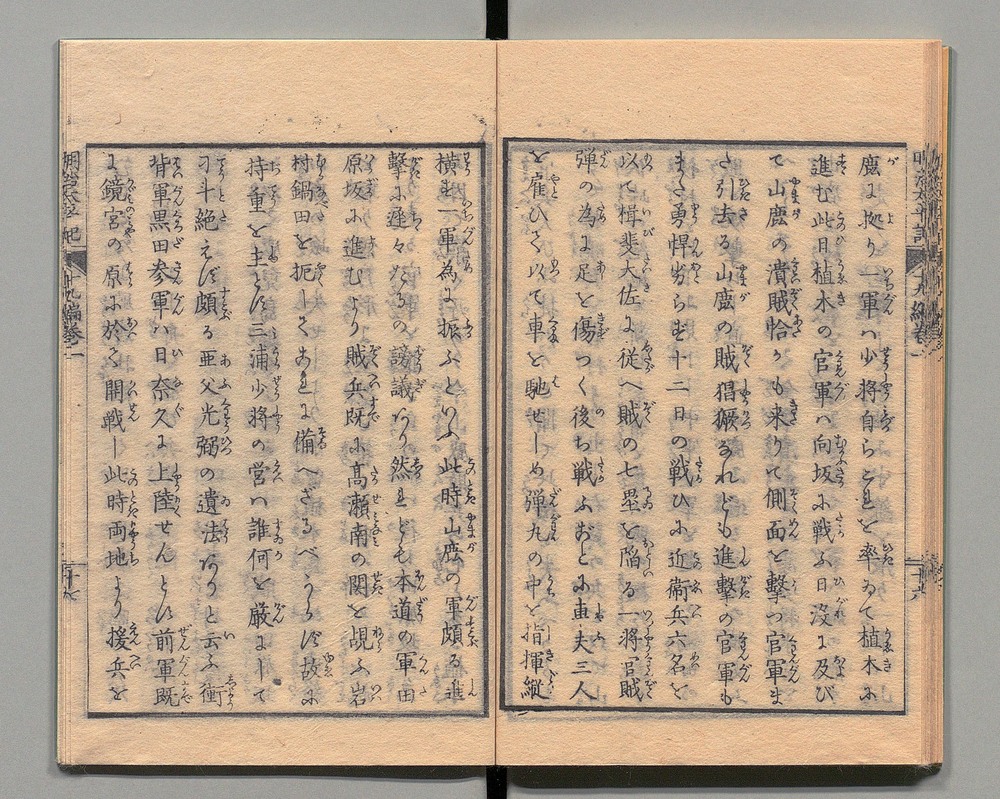 鹿に拠り一軍ハ少将自らこれを率ゐて植木に
進む此日植木の官軍ハ向坂に戦ふ日没に及び
て山鹿の潰賊恰かも来りて側面を撃つ官軍ま
た引去る山鹿の賊猖獗なれども進撃の官軍も
また勇悍劣らず十二日の戦ひに近衛兵六名を
以て揖斐大佐に従へ賊の七塁を陥る一将官賊
弾の為に足を傷つく後ち戦ふおとに車夫三人
を雇ひて以て車を馳せしめ弾丸の中を指揮縦
横す一軍為に振ふといふ此時山鹿の軍頗る進
撃に遅々たるの謗議あり然れども本道の軍田
原坂に進むより賊兵既に高瀬南の関を覘ふ岩
村鍋田を扼してあれに備へざるべからず故に
持重を主とす三浦少将の営ハ誰何を厳にして
刁斗絶えず頗る亜父光弼の遺法ありと云ふ衝
背軍黒田参軍ハ日奈久に上陸せんとす前軍既
に鏡宮の原に於て開戦し此時両地より援兵を
明治太平記
十九編巻一
十六
十七